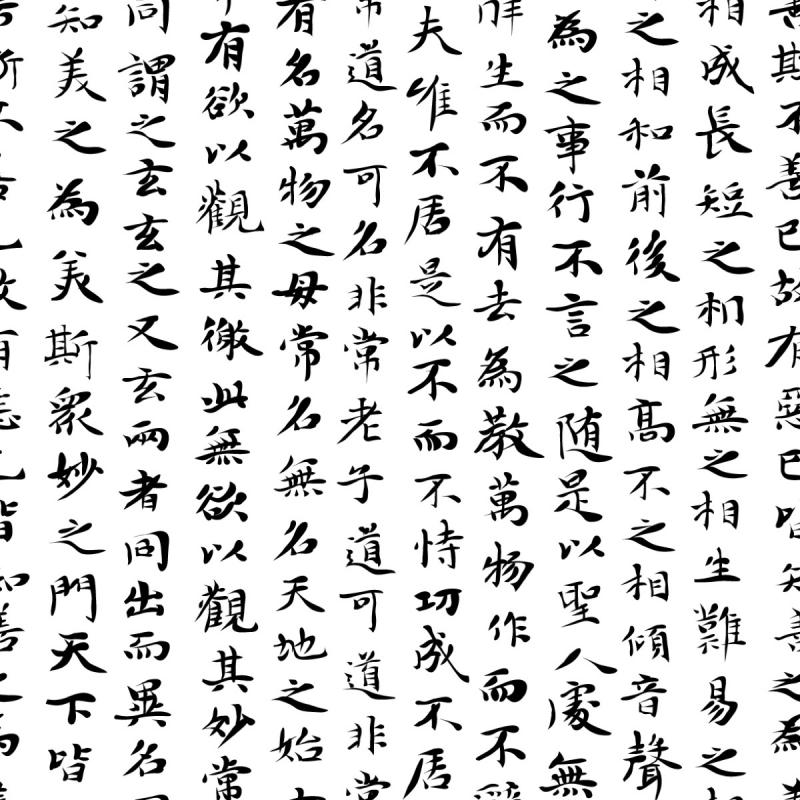 善斯不善已故有惡已皆知善之為善
相成長短之相形無之相生難易之相
之相和前後之相高不之相傾音聲
為之事行不言之随是以聖人處無
辭生而不有去為教萬物作而不辭
夫唯不居是以不而不恃功成不居
常道名可名非常老子道可道非常
有名萬物之母常名無名天地之始有
有欲以觀其徼此無欲以觀其妙常
同謂之玄玄之又玄兩者同出而異名同
知美之為美斯眾妙之門天下皆